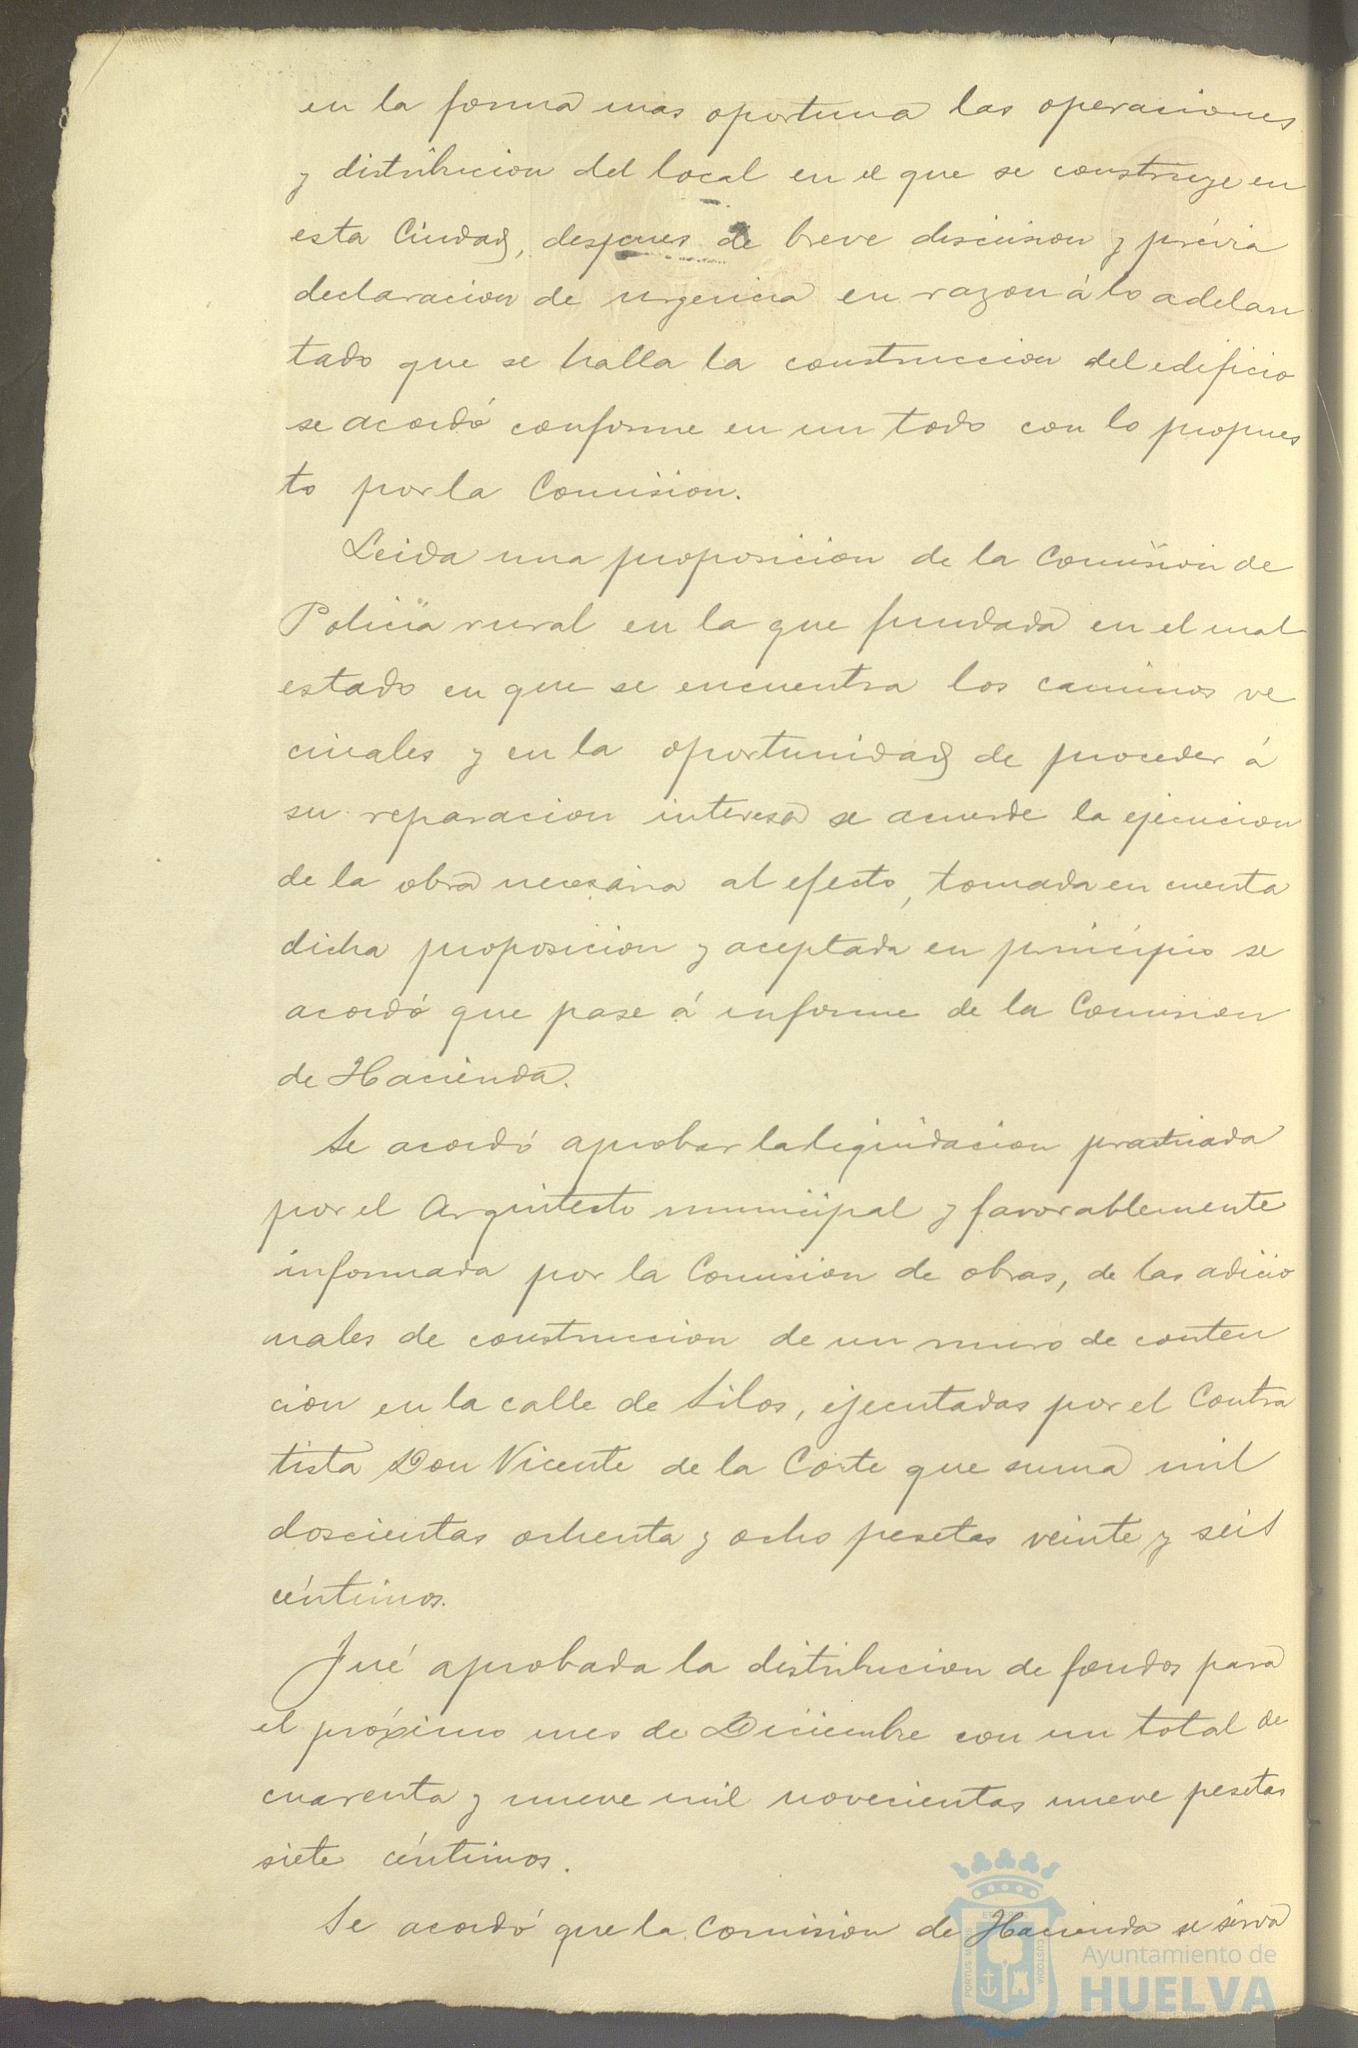 en la forma mas oportuna las operaciones
y distribucion del local en el que se construye en
esta Ciudad, despues de breve discusion y prévia
declaracion de urgencia en razon á lo adelan
tado que se halla la construccion del edificio
se acordó conforme en un todo con lo propues
to por la Comision.
Leida una proposicion de la Comision de
Policia rural en la que fundada en el mal
estado en que se encuentra los caminos ve
cinales y en la oportunidad de proceder á
su reparacion interesa se acuerde la ejecucion
de la obra necesaria al efecto, tomada en cuenta
dicha proposicion y aceptada en principio se
acordó que pase á informe de la Comision
de Hacienda.
Se acordó aprobar la liquidacion practicada
por el Arquitecto municipal y favorablemente
informada por la Comision de obras, de las adicio
nales de construccion de un muro de conten
cion en la calle de Silos, ejecutadas por el Contra
tista Don Vicente de la Corte que suma mil
doscientas ochenta y ocho pesetas veinte y seis
céntimos.
Fué aprobada la distribucion de fondos para
el próximo mes de Diciembre con un total de
cuarenta y nueve mil novecientas nueve pesetas
siete céntimos.
Se acordó que la Comision de Hacienda se sirva
PORTUS MARIS ET TERRAE CUSTODIA
Ayuntamiento de
HUELVA